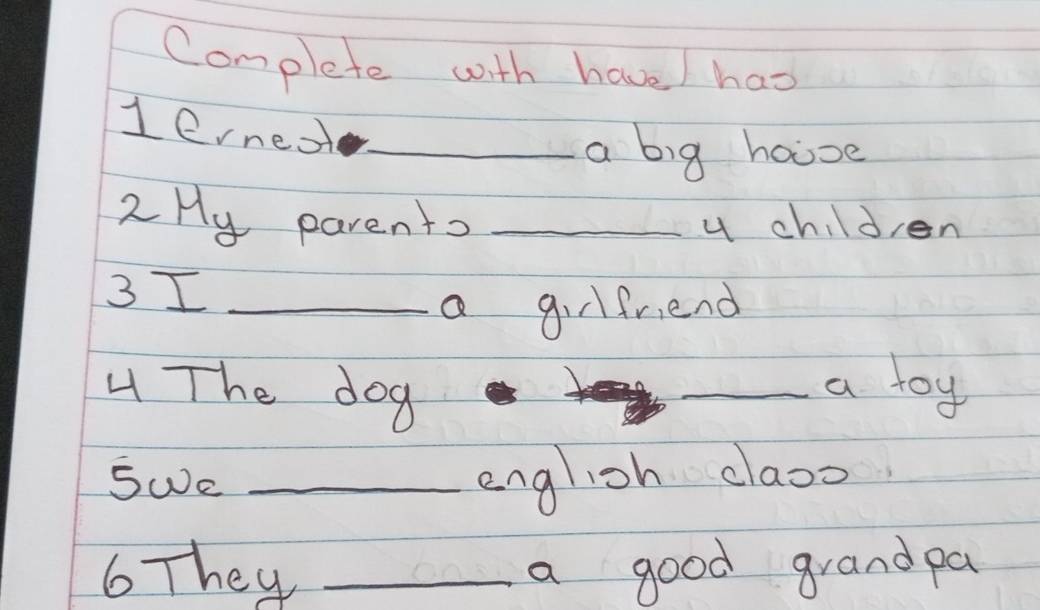 Complete with have/has
1 Ernest ________ a big house
2 My parents ________ 4 children
3 I ________ a girlfriend
4 The dog ________ a toy
5 we ________ english class
6 They ________ a good grandpa